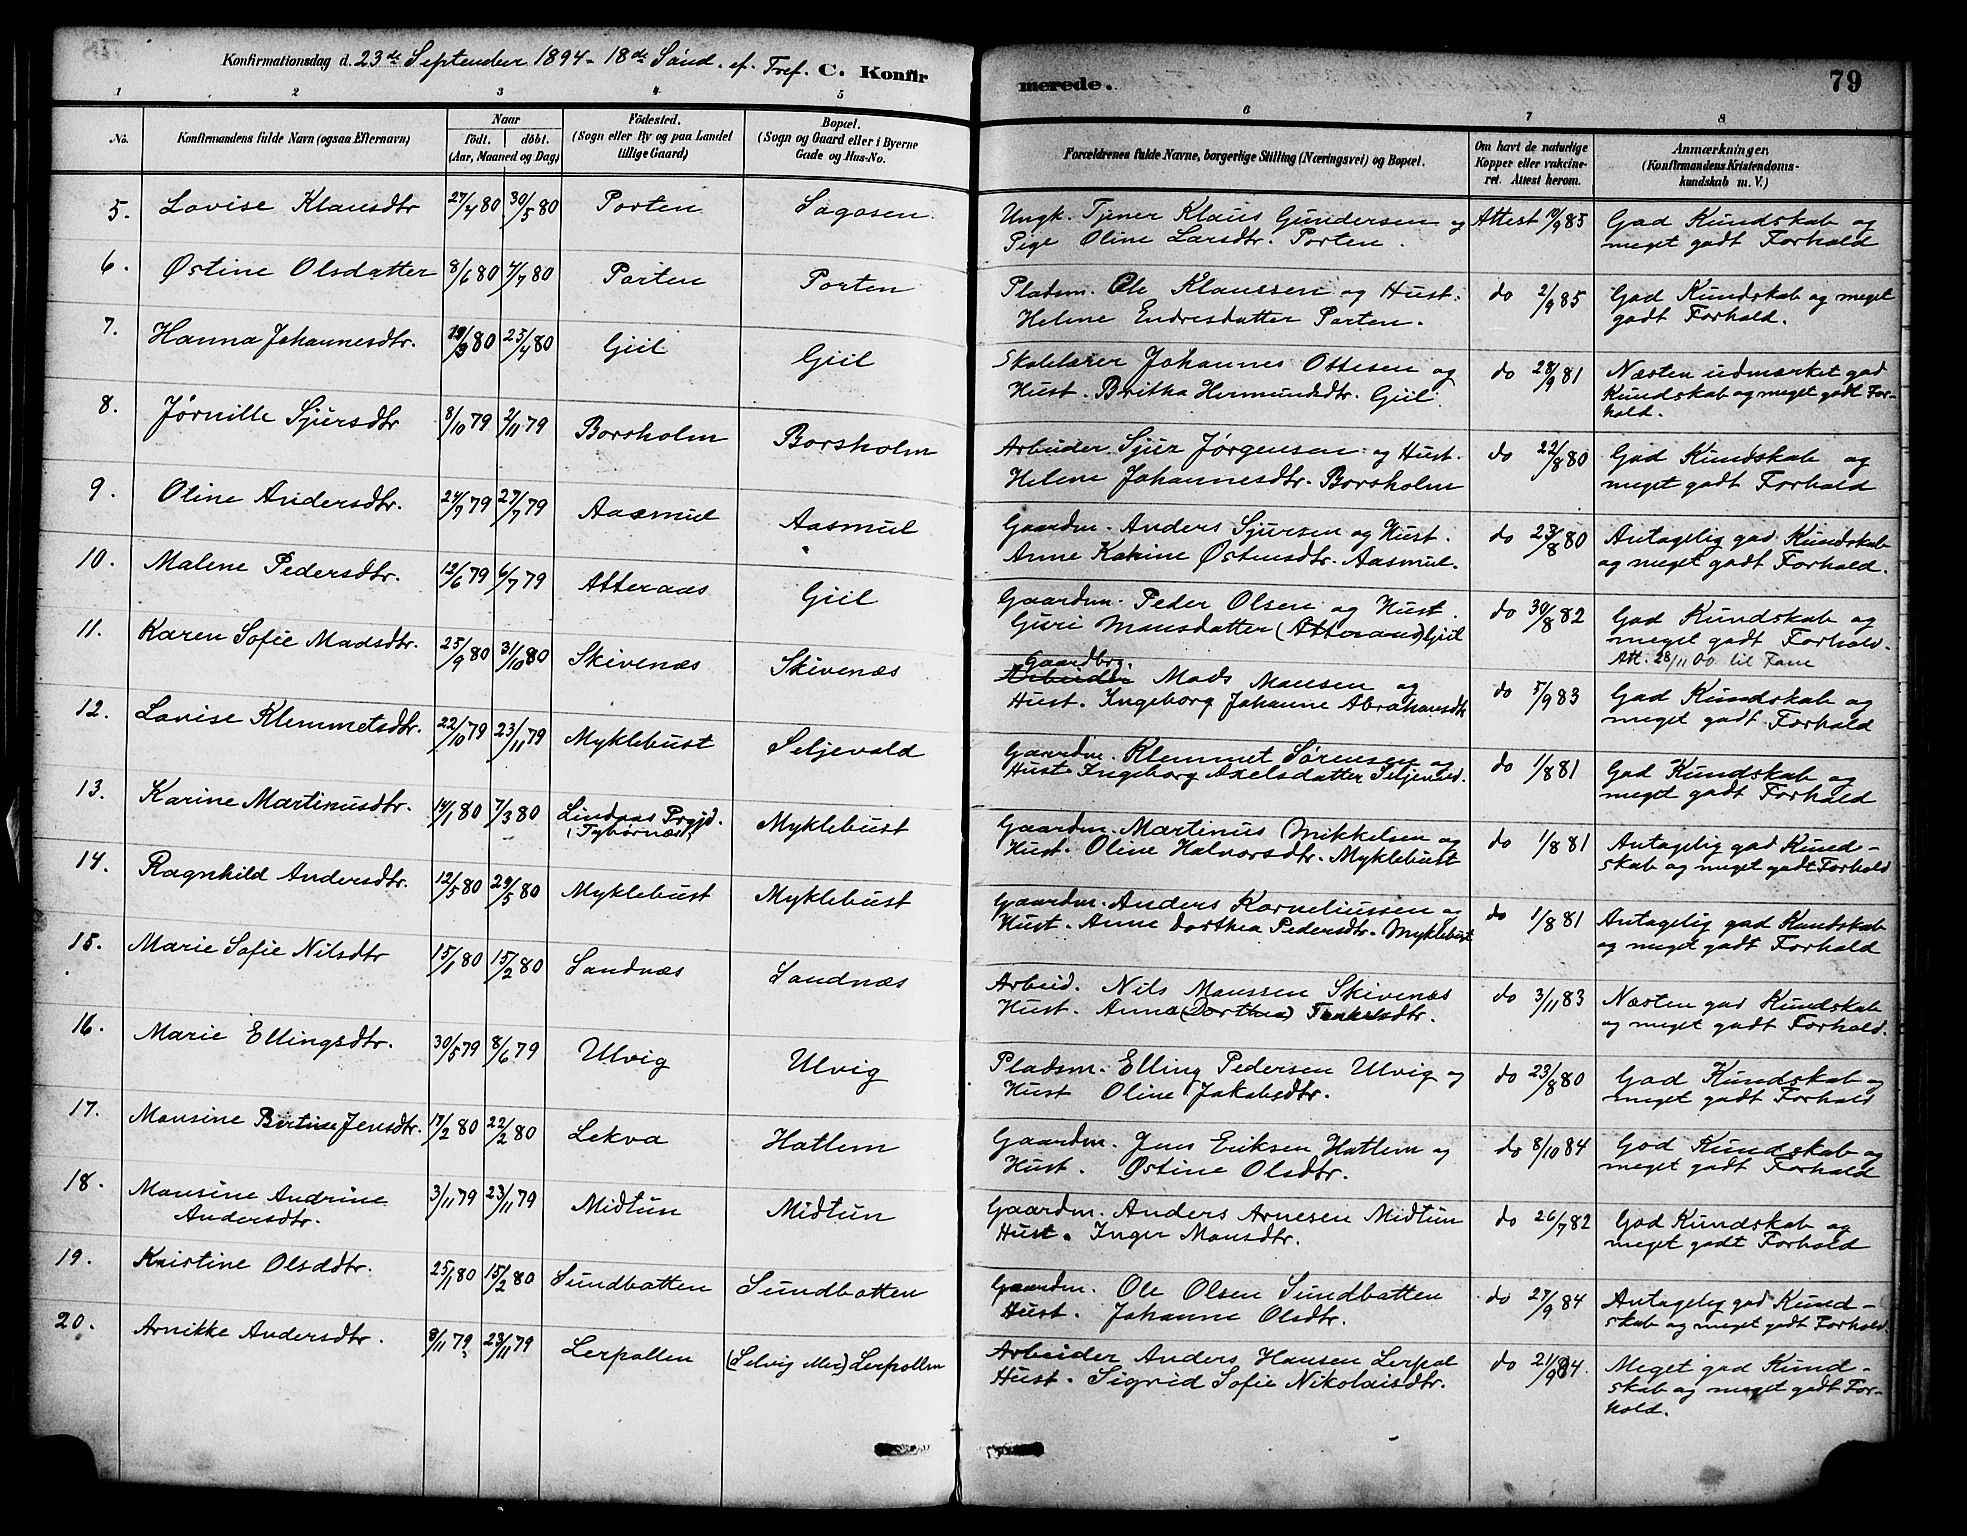 Konfirmationsdag d. 23de September 1894 - 18de Sönd. ef. Tref. C. Konfir merede. 79
1 2 3 4 5 6 7 8
No. Konfirmandens fulde Navn (ogsaa Efternavn) Naar Födt. döbt. (Aar, Maaned og Dag) Födested. (Sogn eller By og paa Landet tillige Gaard) Bopæl. (Sogn og Gaard eller i Byerne Gade og Hus-No. Forældrenes fulde Navne, borgerlige Stilling (Næringsvei) og Bopæl. Om havt de naturlige Kopper eller vakcineret. Attest herom. Anmærkninger. (Konfirmandens Kristendomskundskab m. V.)
5. Lovise Klausdtr 27/4 80 30/5 80 Porten Ungk. Tjener Klaus Gundersen og Attest 10/9 85 God Kundskab og
Pige Oline Larsdtr. Porten. meget godt Forhold
6. Østine Olsdatter 8/6 80 4/7 80 Porten Porten Pladsm. Ole Klaussen og Hust. do 2/9 85 God Kundskab og meget
Helene Endresdatter Porten. godt Forhold.
7. Hanna Johannesdtr. 19/3 80 25/4 80 Giil Giil Skolelærer Johannes Ottesen og do 28/9 81 Næsten udmærket god
Hust. Britha Hermundsdtr. Giil. Kundskab og meget godt For-
hold.
8. Jørnille Sjursdtr 8/10 79 2/11 79 Borsholm Borsholm Arbeider Sjur Jørgensen og Hust. do 22/8 80 God Kundskab og
Helene Johannesdtr. Borsholm meget godt Forhold
9. Oline Andersdtr. 27/7 79 Aasmul Aasmul Gaardm. Anders Sjursen og Hust. do 23/8 80 Antagelig god Kundskab
Anne Karine Østensdtr. Aasmul. og meget godt Forhold.
10. Malene Pedersdtr. 12/6 79 6/7 79 Atteraas Giil Gaardm. Peder Olsen og Hust. do 30/8 82 God Kundskab og
Guri Monsdatter (Atteraas) Giil meget godt Forhold.
Att. 28/11 00 til Fane
11. Karen Sofie Madsdtr. 25/9 80 31/10 80 Skivenæs Skivenæs Gaardbrg.
Arbeider Mads Monsen og do 5/9 83 God Kundskab og
Hust. Ingeborg Johanne Abrahamsdtr meget godt Forhold
12. Lovise Klemmetsdtr. 22/10 79 23/11 79 Myklebust Seljevold Gaardm. Klemmet Sørensen og do 1/8 81 God Kundskab og
Hust. Ingeborg Axelsdatter Seljevold. meget godt Forhold
13. Karine Martinusdtr. 14/1 80 7/3 80 Lindaas Prgjd. Myklebust Gaardm. Martinus Mikkelsen og do 1/8 81 Antagelig god Kund-
Hust. Oline Halvorsdtr. Myklebust skab og meget godt Forhold
14. Ragnhild Andersdtr. 12/5 80 29/5 80 Myklebust Myklebust Gaardm. Anders Korneliussen og do 1/8 81 Antagelig god Kundskab
Hust. Anne Dorthea Pedersdtr. Myklebust og meget godt Forhold
15. Marie Sofie Nilsdtr 15/1 80 15/2 80 Sandnæs Sandnæs Arbeid. Nils Monssen Skivenæs do 3/11 83 Næsten god Kundskab
Hust. Anna (Dorthea) og meget godt Forhold.
16. Marie Ellingsdtr. 30/5 79 8/6 79 Ulvig Ulvig Pladsm. Elling Pedersen Ulvig og do 23/8 80 God Kundskab og
Hust Oline Jakobsdtr. meget godt Forhold
17. Monsine Bertine Jensdtr. 17/2 80 22/2 80 Lekva Hatlem Gaardm. Jens Eriksen Hatlem og do 8/10 84 God Kundskab og
Hust. Østine Olsdtr. meget godt Forhold
18. Monsine Andrine 3/11 79 23/11 79 Midtun Midtun Gaardm. Anders Arnesen Midtun do 26/7 82 God Kundskab og
Andersdtr. Hust. Inger Monsdtr. meget godt Forhold
19. Kristine Olsddtr. 25/1 80 15/2 80 Sundbotten Sundbotten Gaardm. Ole Olsen Sundbotten do 27/9 84 Antagelig god Kund-
Hust. Johanne Olsdtr. skab og meget godt Forhold.
20. Arnikke Andersdtr. 8/11 79 23/11 79 Lerpollen (Selvig Ytre) Lerpollen Arbeider Anders Hansen Lerpol do 21/9 84. Meget god Kund-
Hust. Sigrid Sofie Nikolaisdtr. skab og meget godt For-
hold.